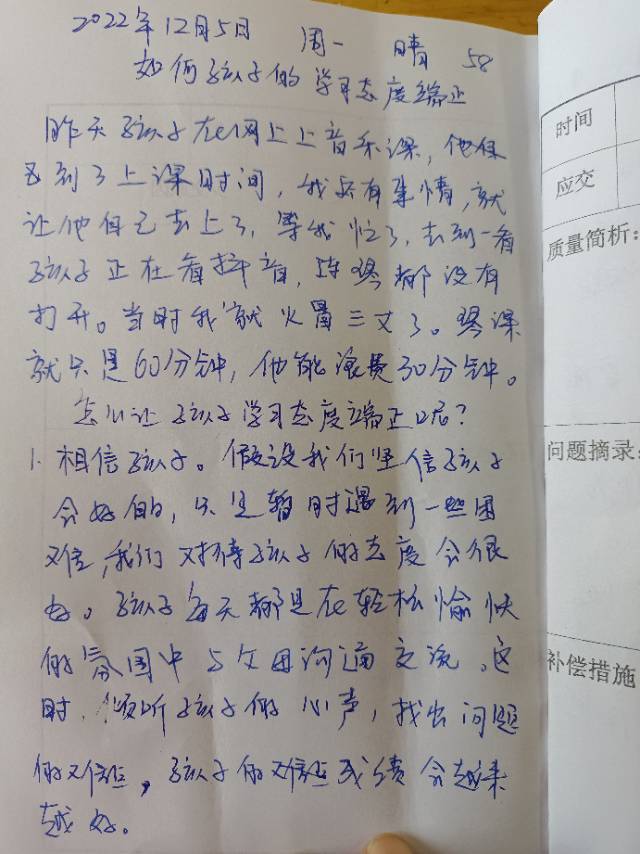 2022年12月5日 周一 晴 58
如何孩子的学习态度端正
昨天孩子在网上上音乐课,他保
到了上课时间,我还有事情,就
让他自己去上了,等我忙了,去到一看
孩子正在看抖音,连琴都没有
打开。当时我就火冒三丈了。琴课
就只是60分钟,他能浪费30分钟。
怎么让孩子学习态度端正呢?
1. 相信孩子。假设我们坚信孩子
会好的,只是暂时遇到一些困
难,我们对待孩子的态度会很
好。孩子每天都是在轻松愉快
的氛围中与父母沟通交流。这
时,倾听孩子的心声,找出问题
的难题,孩子的难题成绩会越来
越好。
时间
应交
质量简析:
问题摘录:
补偿措施